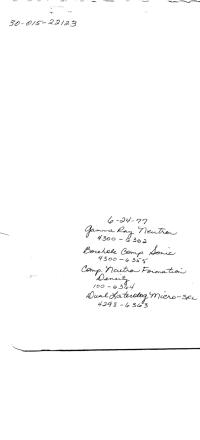 30-015-22123
6-24-77
Gamma Ray Neutron
4300-6362
Borehole Comp Sonic
4300-6355
Comp. Neutron Formation
Density
100-6364
Dual Laterolog Micro-SFL
4298-6363